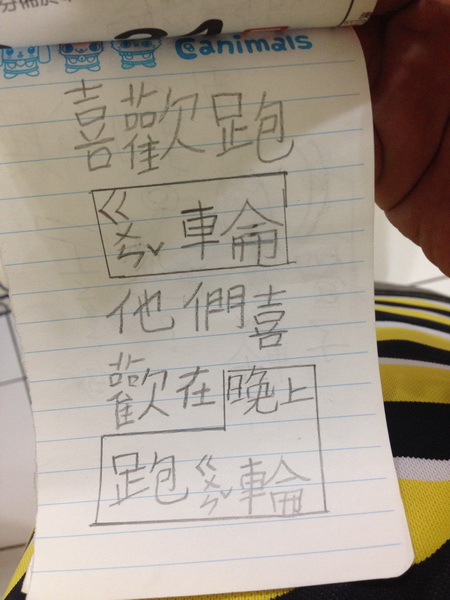 @animals
喜歡跑
ㄍㄨㄣˇ車輪
他們喜
歡在晚上
跑ㄍㄨㄣˇ車輪